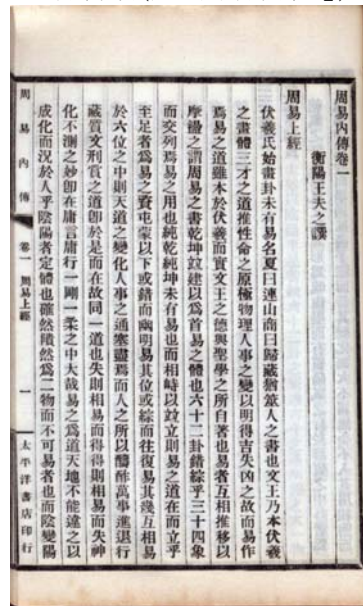 周易內傳卷一
衡陽王夫之譔
周易上經
伏羲氏始畫卦未有易名夏曰連山商曰歸藏猶筮人之書也文王乃本伏羲
之畫體三才之道推性命之原極物理人事之變以明得吉失凶之故而易作
焉易之道雖本於伏羲而實文王之德與聖學之所自著也易者互相推移以
摩盪之謂周易之書乾坤並建以爲首易之體也六十二卦錯綜乎三十四象
而交列焉易之用也純乾純坤未有易也而相峙以並立則易之道在而立乎
至足者爲易之資屯蒙以下或錯而幽明易其位或綜而往復易其幾互相易
於六位之中則天道之變化人事之通塞盡焉而人之所以醻酢萬事進退行
藏質文刑賞之道卽於是而在故同一道也失則相易而得得則相易而失神
化不測之妙卽在庸言庸行一剛一柔之中大哉易之爲道天地不能違之以
成化而況於人乎陰陽者定體也確然隤然爲二物而不可易者也而陰變陽
周易內傳 卷一 周易上經 一 太平洋書店印行